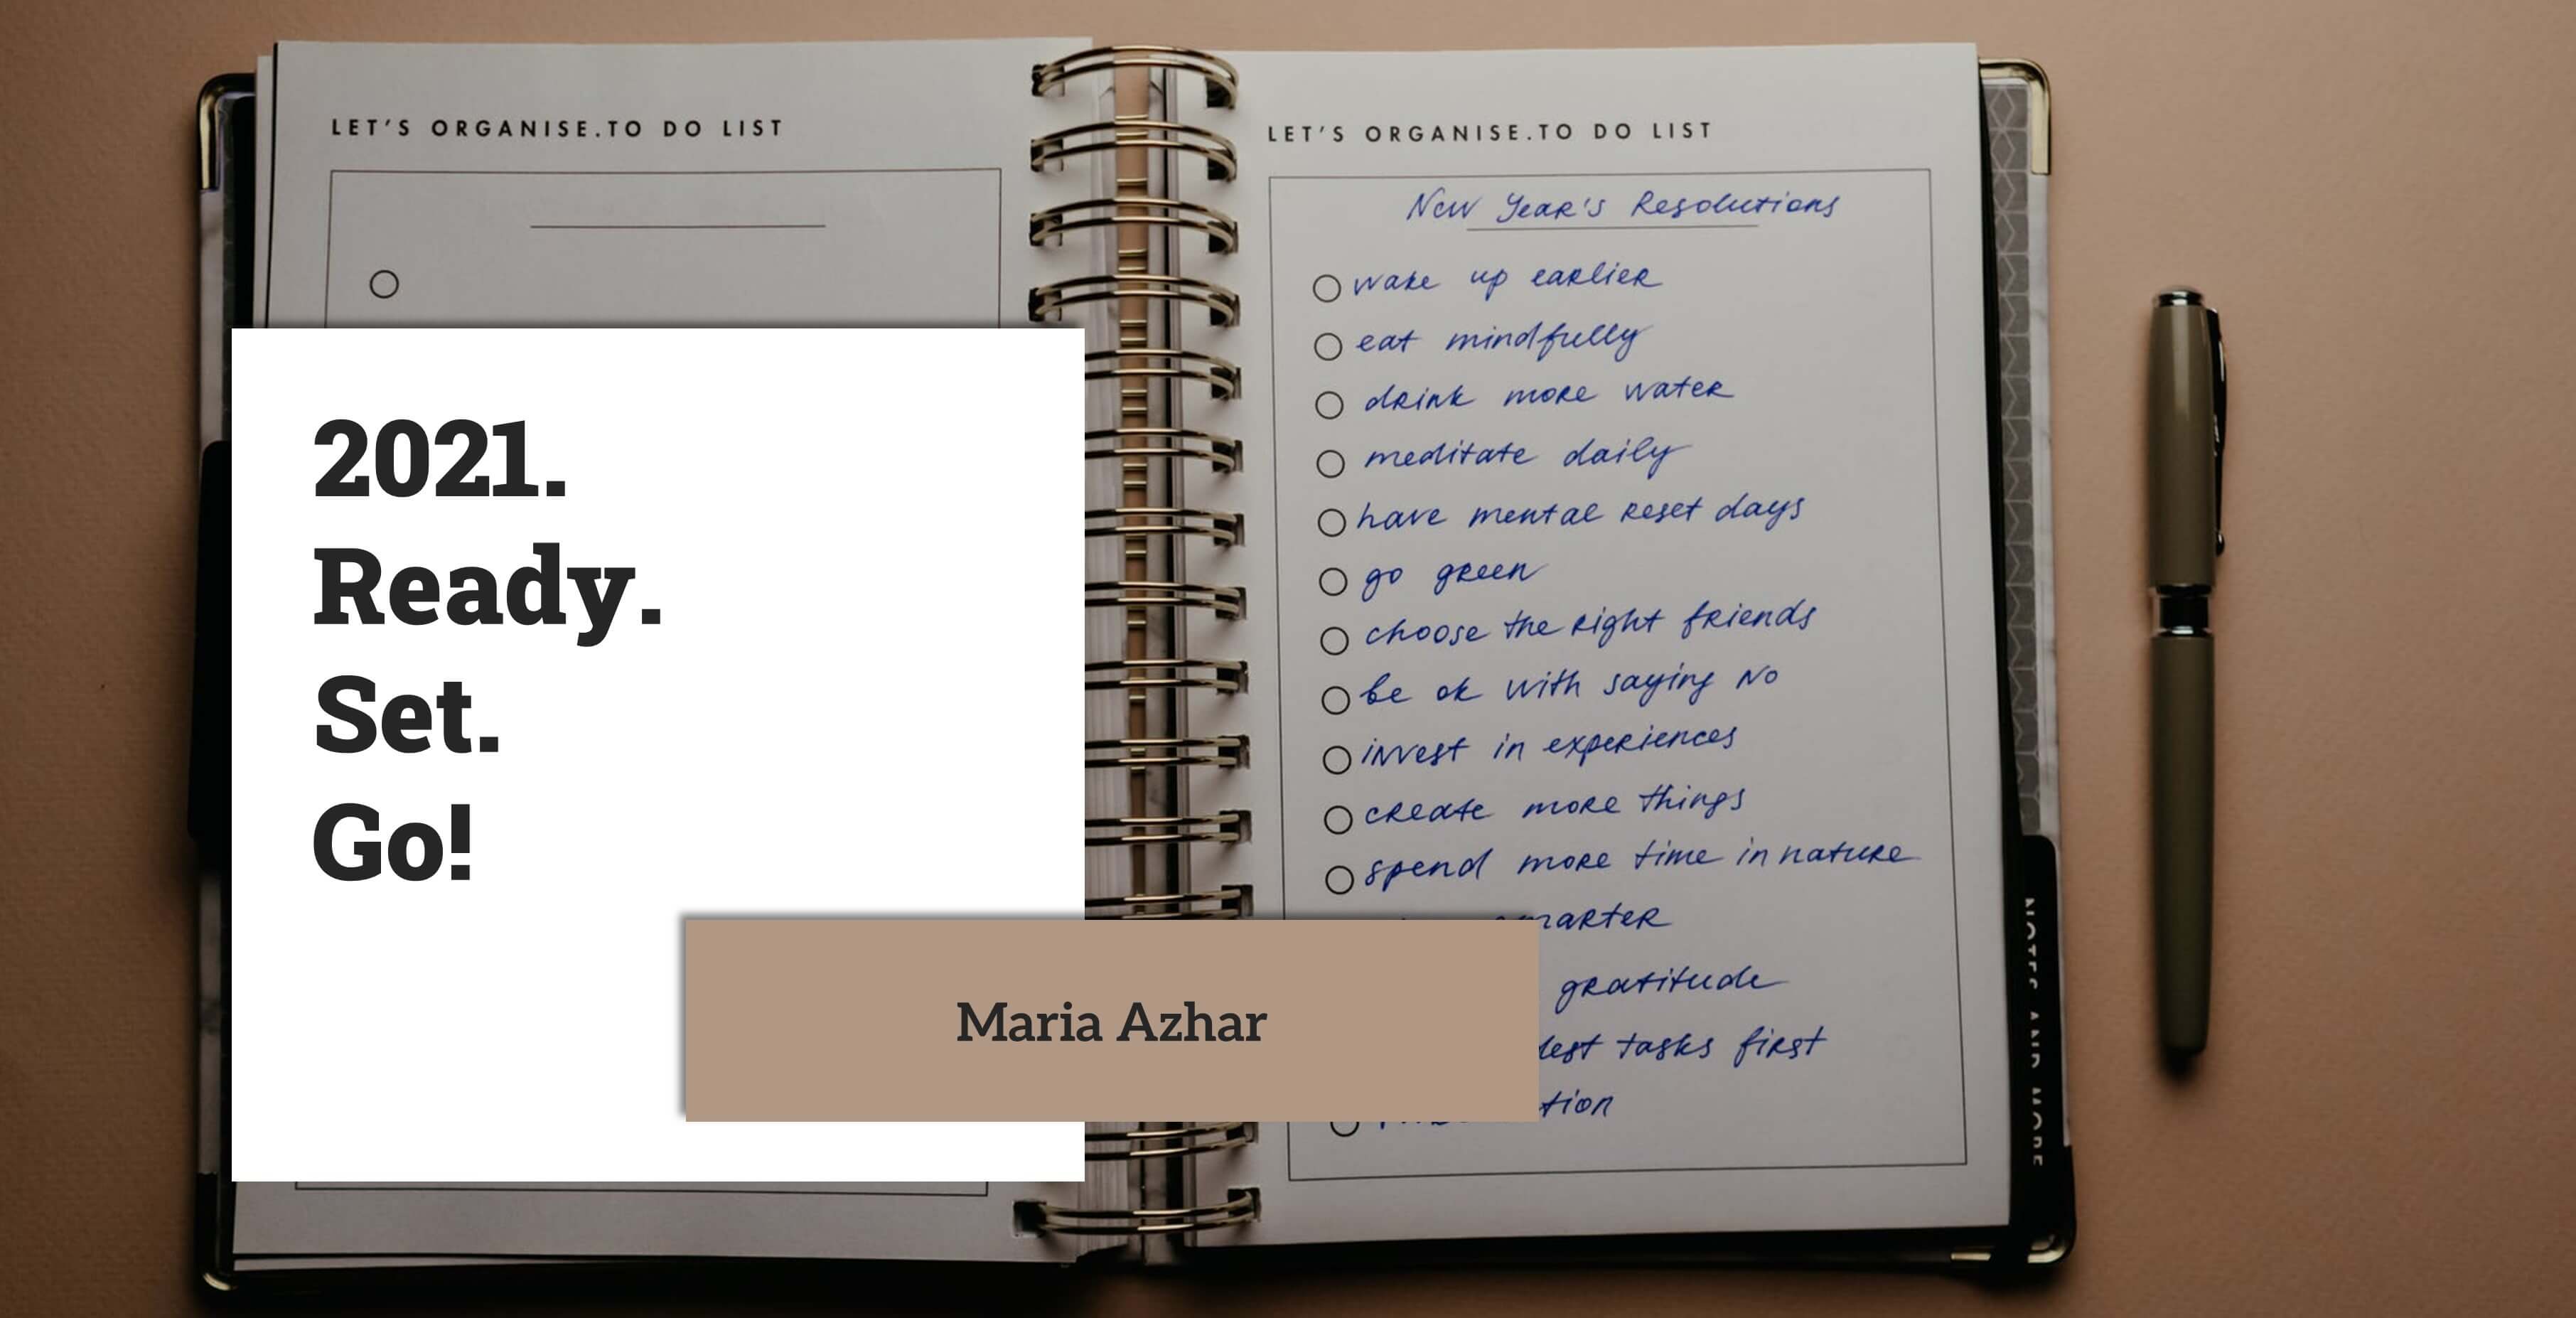 LET'S ORGANISE.TO DO LIST
2021.
Ready.
Set.
Go!
Maria Azhar
LET'S ORGANISE.TO DO LIST
New Year's Resolutions
wake up earlier
eat mindfully
drink more water
meditate daily
have mental reset days
go green
choose the right friends
be ok with saying No
invest in experiences
create more things
spend more time in nature
gratitude
tasks first
NOTES AND MORE